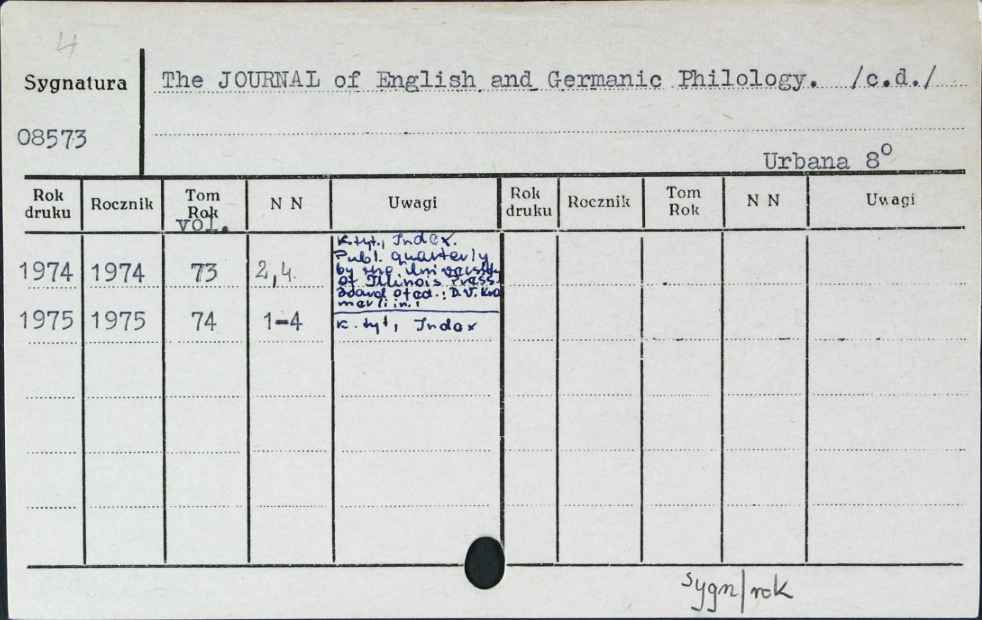 4
Sygnatura
The JOURNAL of English and Germanic Philology. /c.d./
08573
Urbana 8°
Rok druku Rocznik Tom Rok vol. N N Uwagi Rok druku Rocznik Tom Rok N N Uwagi
K.tyt., Index.
Publ. quarterly
by the University
of Illinois Press
Board of ed.: D.V. Kra
mer
1974 1974 73 2,4.
1975 1975 74 1-4 K. tyt, Index
sygn/rok